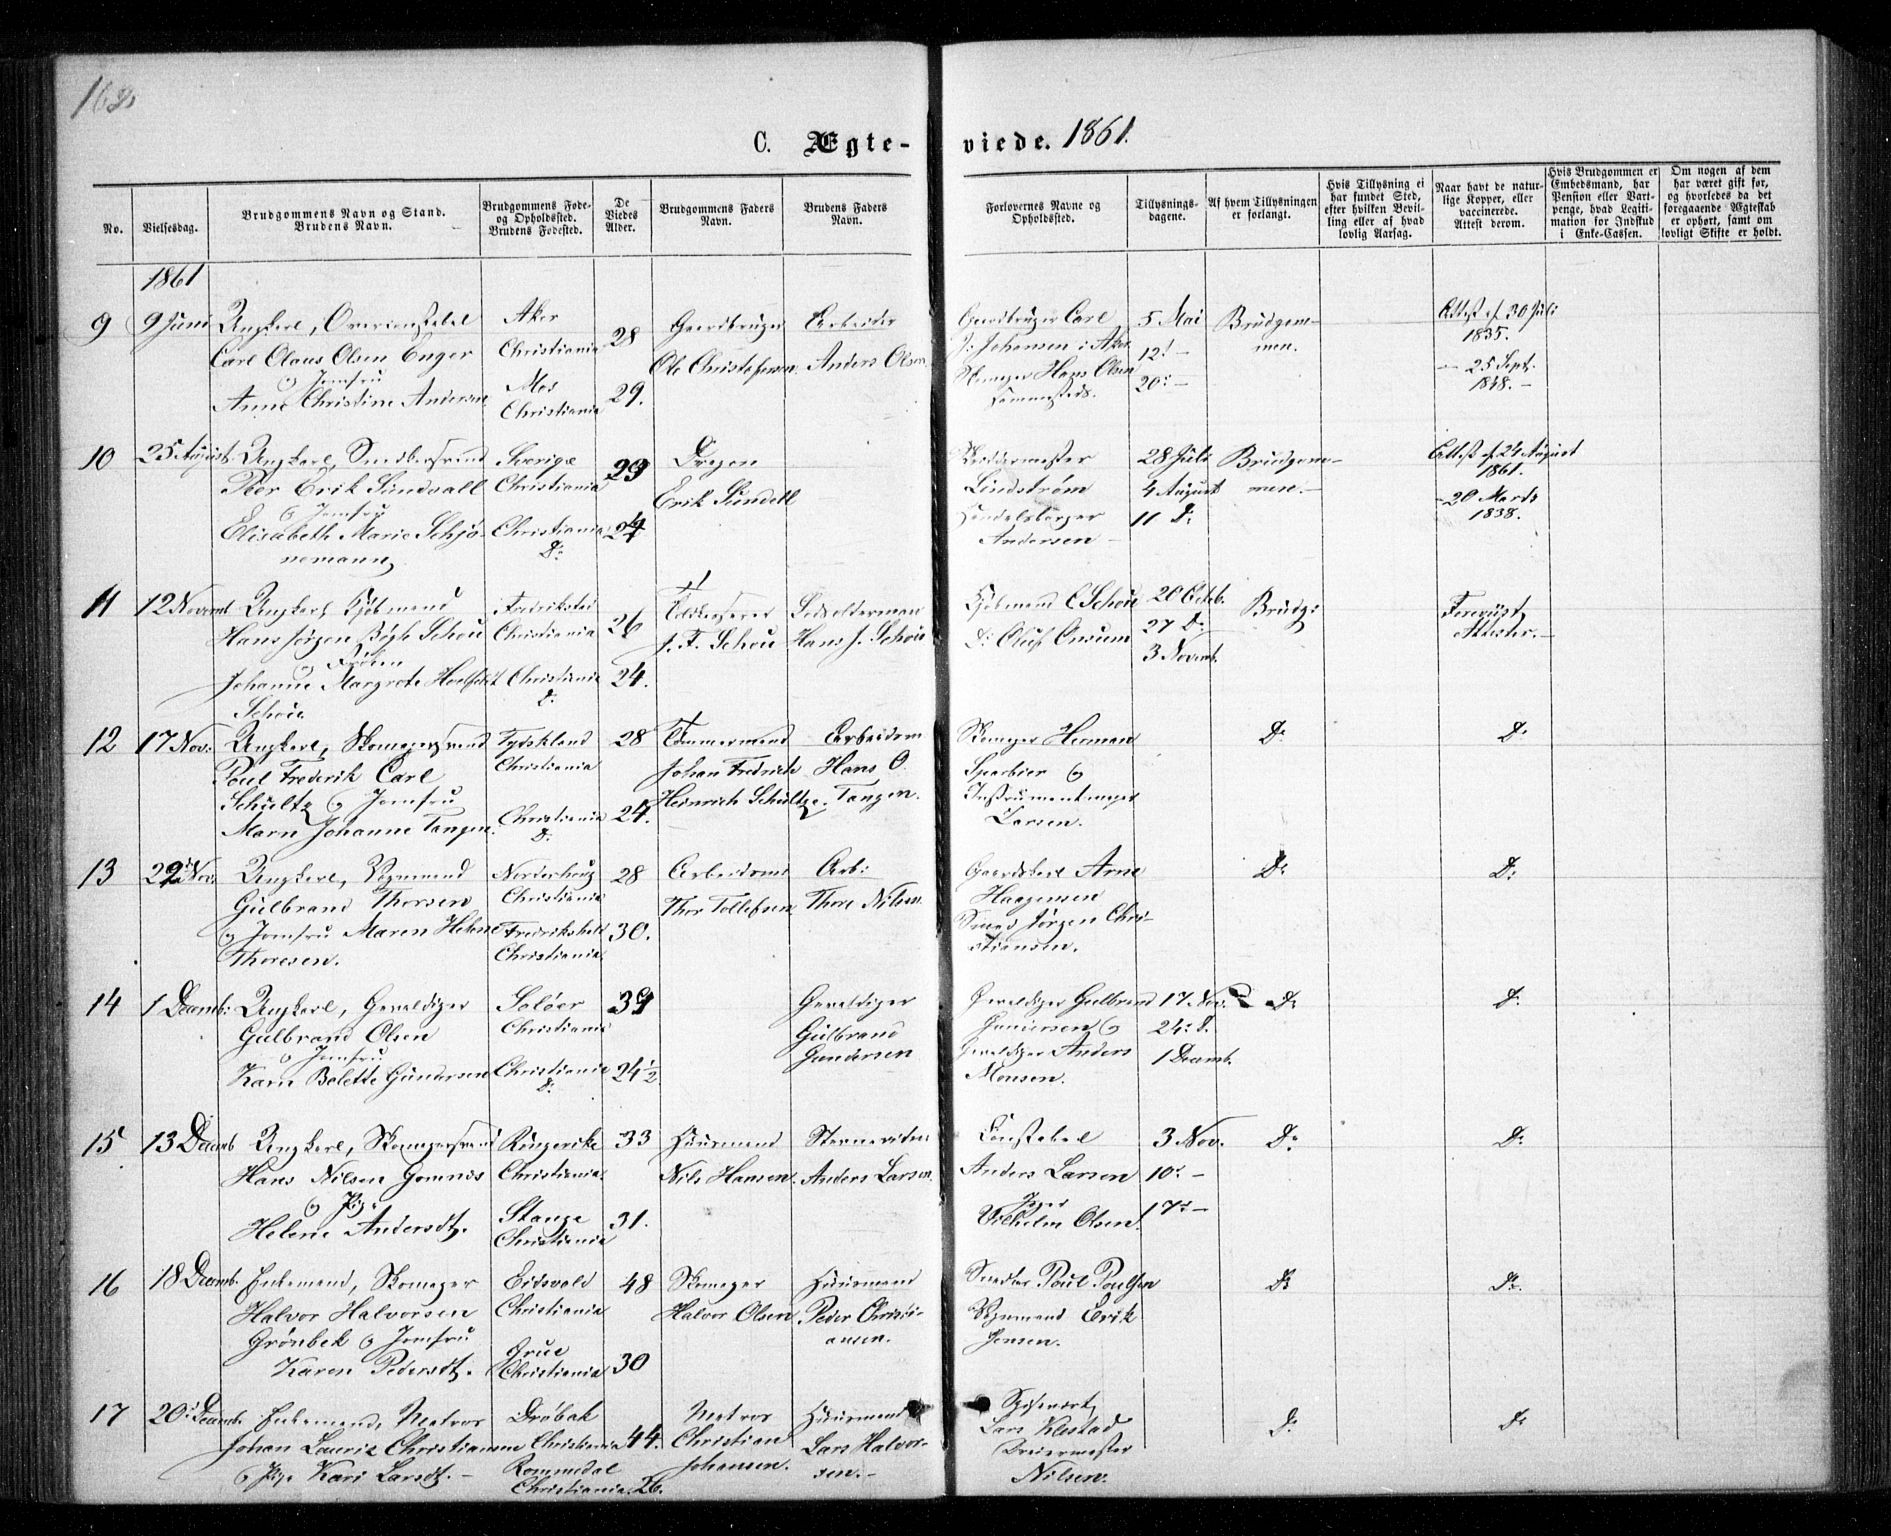 162
C. Ægte-
viede. 1861.
No.
Vielsesdag.
Brudgommens Navn og Stand.
Brudens Navn.
Brudgommens Føde-
og Opholdssted.
Brudens Fødested.
De
Viedes
Alder.
Brudgommens Faders
Navn.
Brudens Faders
Navn.
Forlovernes Navne og
Opholdssted.
Tillysnings-
dagene.
Af hvem Tillysningen
er forlangt.
Hvis Tillysning ei
har fundet Sted,
efter hvilken Bevil-
ling eller af hvad
lovlig Aarsag.
Naar havt de natur-
lige Kopper, eller
vaccinerede.
Attest derom.
Hvis Brudgommen er
Embedsmand, har
Pension eller Vart-
penge, hvad Legiti-
mation for Indskud
i Enke-Cassen.
Om nogen af dem
har været gift før,
og hvorledes da det
foregaaende Ægteskab
er ophørt, samt om
lovligt Skifte er holdt.
1861
9
9 Juni
Ungkarl, Overconstabel
Carl Olaus Olsen Enger
og Jomfru
Anne Christine Andersen
Aker
Christiania
Mos
Christiania
28
29.
Gaardbruger
Ole Christofersen
Arbeider
Anders Olsen
Gaardbruger Carl
J. Johansen i Aker
Skomager Hans Olsen
sammesteds.
5 Mai
12. –
20. –
Brudgom-
men.
Attest af 30 Juli
1835.
– 25 Sept.
1848. –
10
25 August
Ungkarl, Snedkersvend
Peer Erik Sundvall
og Jomfru
Elisabeth Marie Schjø-
nemann
Sverige
Christiania
Christiania
D:
23
24
Dragon
Erik Sundell
Skræddermester
Lindstrøm
Handelsborger
Andersen –
28 Juli
4 August
11 D:
Brudgom-
men. –
Attest af 24 August
1861.
– 20 Marts
1838.
11
12 Novemb
Ungkarl, Kjøbmand
Hans Jørgen Bøgh Schou
og Frøken
Johanne Margrete
Schou.
Fredrikstad
Christiania
Christiania
D:
26
24.
J. F. Schou
Hans J. Schou
Kjøbmand C Schou
D: Oluf Onsum
20 Octb.
27 D:
3 Novemb.
Brudg:
Forevist
Attester. –
12
17 Nov:
Ungkarl, Skomagersvend
Poul Frederik Carl
Schultz og Jomfru
Maren Johanne Tangen.
Tydskland
Christiania
Christiania
D:
28
24.
Tømmermand
Johan Fredrich
Heinrich Schultze.
Arbeidsm
Hans O.
Tangen.
Skomager Herman
Sparbier og
Instrumentmager
Larsen.
D:
D:
13
22 Nov:
Ungkarl, Vognmand
Gulbrand Thorsen
og Jomfru Maren Helene
Thoresen.
Norderhoug
Christiania
Fredrikshald
Christiania
28
30.
Arbeidsmd
Thor Tollefsen
Arb:
Thore Nilsen
Gaardskarl Arne
Haagensen
Smed Jørgen Chri-
stiansen.
D:
D:
14
1 Decemb:
Ungkarl, Gevaldiger
Gulbrand Olsen
og Jomfru
Karn Bolette Gundersen
Solør
Christiania
Christiania
D:
39
24½
Gevaldiger
Gulbrand
Gundersen
Gevaldiger Gulbrand
Gundersen og
Gevaldiger Anders
Monsen.
17 Nov.
24. D.
1 Decemb.
D:
D:
15
13 Decemb
Ungkarl, Skomagersvend
Hans Nilsen Gomnes
og Pige
Helene Andersdt.
Ringerike
Christiania.
Stange
Christiania
33
31.
Huusmand
Nils Hansen.
Anders Larsen.
Constabel
Anders Larsen
Vilhelm Olsen.
3 Nov.
10. –
17. –
D:
D:
16
18 Decemb.
Enkemand, Skomager
Halvor Halvorsen
Grønbek og Jomfru
Karen Pedersdt.
Eidsvold
Christiania
Grue
Christiania
48
30
Skomager
Halvor Olsen
Huusmand
Peder Christi-
ansen.
Snedker Poul Poulsen
Vognmand Erik
Jensen.
D:
D:
17
20 Decemb.
Enkemand, Matros
Johan Lauritz Christiansen
og Pige Kari Larsdt. –
Drøbak
Christiania
Rommedal
Christiania.
44.
26.
Matros
Christian
Johansen.
Huusmand
Lars Halvor-
sen. –
Spisevært
Lars Klestad
Dreiermester
Nilsen.
D:
D: